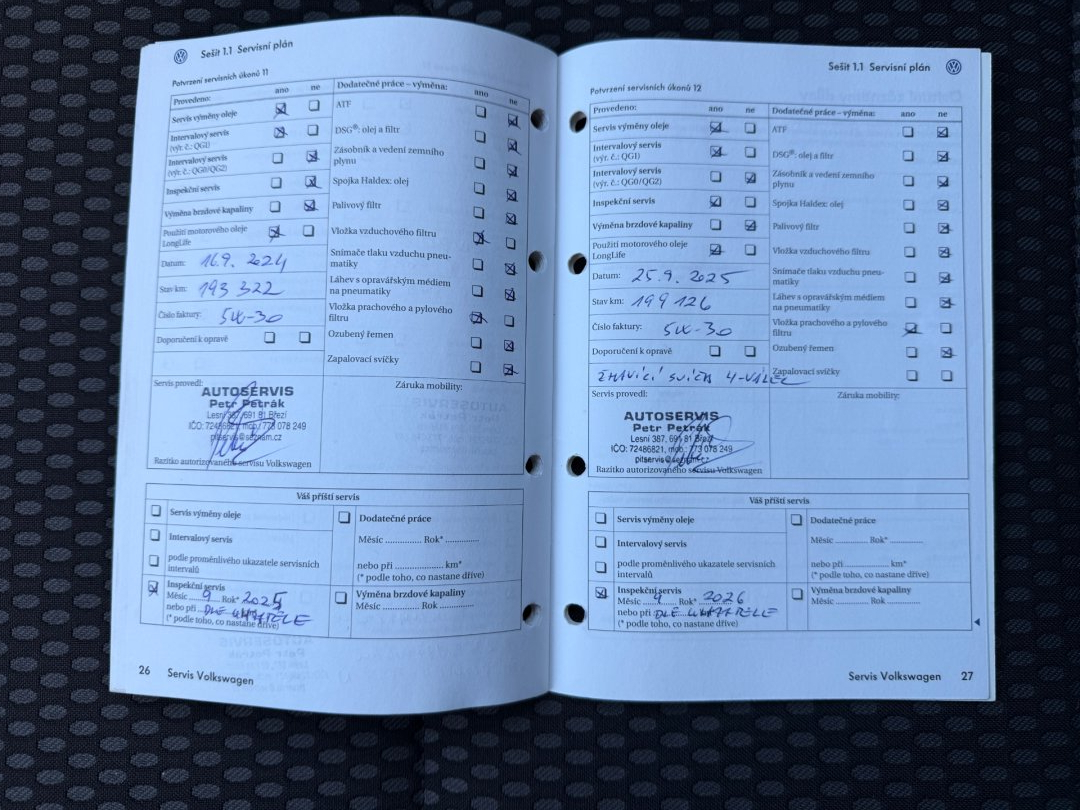 Sešit 1.1 Servisní plán
Potvrzení servisních úkonů 11
Provedeno: ano ne
Servis výměny oleje
Intervalový servis
(výr. č.: QG1)
Intervalový servis
(výr. č.: QG0/QG2)
Inspekční servis
Výměna brzdové kapaliny
Použití motorového oleje
LongLife
Datum: 16.9. 2024
Stav km: 193 322
Číslo faktury: 5W-30
Doporučení k opravě
Dodatečné práce – výměna: ano ne
ATF
DSG®: olej a filtr
Zásobník a vedení zemního
plynu
Spojka Haldex: olej
Palivový filtr
Vložka vzduchového filtru
Snímače tlaku vzduchu pneu-
matiky
Láhev s opravářským médiem
na pneumatiky
Vložka prachového a pylového
filtru
Ozubený řemen
Zapalovací svíčky
Servis provedl:
AUTOSERVIS
Petr Petrák
Lesní 387, 691 81 Březí
IČO: 72486821, mob.: 773 078 249
pitservis@seznam.cz
Razítko autorizovaného servisu Volkswagen
Záruka mobility:
Váš příští servis
Servis výměny oleje
Intervalový servis
podle proměnlivého ukazatele servisních
intervalů
Inspekční servis
Měsíc 9 Rok* 2025
nebo při DLE
(* podle toho, co nastane dříve)
Dodatečné práce
Měsíc .............. Rok* .............
nebo při .................... km*
(* podle toho, co nastane dříve)
Výměna brzdové kapaliny
Měsíc .............. Rok .............
26 Servis Volkswagen
Sešit 1.1 Servisní plán
Potvrzení servisních úkonů 12
Provedeno: ano ne
Servis výměny oleje
Intervalový servis
(výr. č.: QG1)
Intervalový servis
(výr. č.: QG0/QG2)
Inspekční servis
Výměna brzdové kapaliny
Použití motorového oleje
LongLife
Datum: 25.9. 2025
Stav km: 199 126
Číslo faktury: 5W-30
Doporučení k opravě
ŽHAVÍCÍ SVÍČKA 4-VÁLEC
Dodatečné práce – výměna: ano ne
ATF
DSG®: olej a filtr
Zásobník a vedení zemního
plynu
Spojka Haldex: olej
Palivový filtr
Vložka vzduchového filtru
Snímače tlaku vzduchu pneu-
matiky
Láhev s opravářským médiem
na pneumatiky
Vložka prachového a pylového
filtru
Ozubený řemen
Zapalovací svíčky
Servis provedl:
AUTOSERVIS
Petr Petrák
Lesní 387, 691 81 Březí
IČO: 72486821, mob.: 773 078 249
pitservis@seznam.cz
Razítko autorizovaného servisu Volkswagen
Záruka mobility:
Váš příští servis
Servis výměny oleje
Intervalový servis
podle proměnlivého ukazatele servisních
intervalů
Inspekční servis
Měsíc 9 Rok* 2026
nebo při DLE
(* podle toho, co nastane dříve)
Dodatečné práce
Měsíc .............. Rok* .............
nebo při .................... km*
(* podle toho, co nastane dříve)
Výměna brzdové kapaliny
Měsíc .............. Rok .............
Servis Volkswagen 27